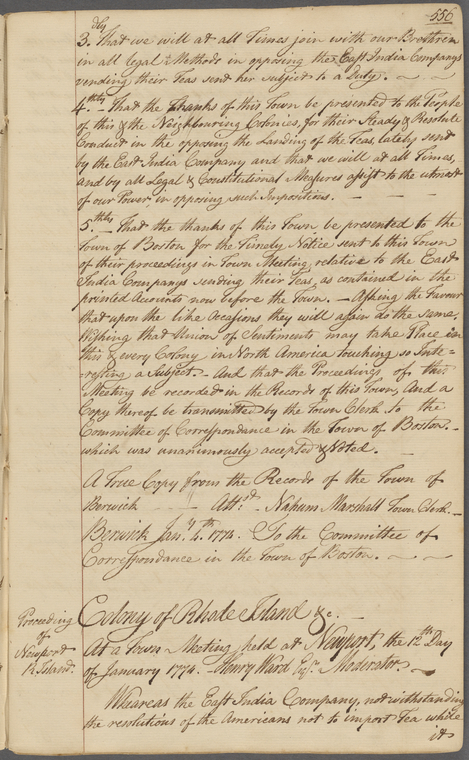 556
3.dly That we will at all Times join with our Brethren
in all legal Methods in opposing the East India Companys
vending their Teas sent her subject to a Duty. ~ ~
4.thly – That the Thanks of this Town be presented to the People
of this & the Neighbouring Colonies, for their Ready & Resolute
Conduct in the opposing the Landing of the Teas, lately send
by the East India Company and that we will at all Times,
and by all Legal & Constitutional Measures assist to the utmost
of our Power in opposing such Impositions. –
5.thly – That the thanks of this Town, be presented to the
Town of Boston for the Timely Notice sent to this Town
of their proceedings in Town Meeting, relative to the East
India Companys sending their Teas, as contained in the
printed Accounts now before the Town. – Asking the Favour
that upon the like Occasions they will again do the same,
Wishing that Union of Sentiments may take Place in
this & every Colony in North America touching so Inte=
=resting a Subject – And that the Proceedings of this
Meeting be recorded in the Records of this Town, And a
Copy thereof be transmitted by the Town Clerk to the
Committee of Correspondence in the Town of Boston. –
which was unanimously accepted & Voted. –
A True Copy from the Records of the Town of
Berwick – Attsd. Nahum Marshall Town Clerk. –
Berwick Jany. 4.th 1774. To the Committee of
Correspondence in the Town of Boston. ~ ~
Proceeding
of
Newport
R. Island.
Colony of Rhode Island &c. –
At a Town Meeting held at Newport, the 12th Day
of January 1774. – Henry Ward Esqr. Moderator. –
Whereas the East India Company, notwithstanding
the resolutions of the Americans not to import Tea while
it